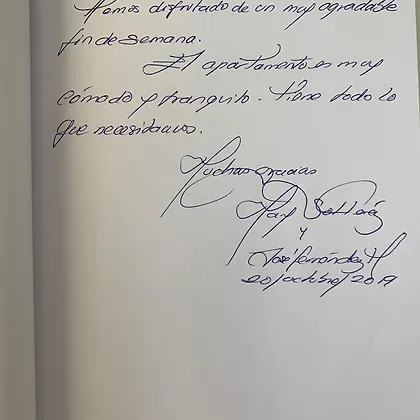 Hemos disfrutado de un muy agradable
fin de semana.
El apartamento es muy
cómodo y tranquilo. Tiene todo lo
que necesitamos.
Muchas gracias
y
José Fernández H
20/octubre/2019